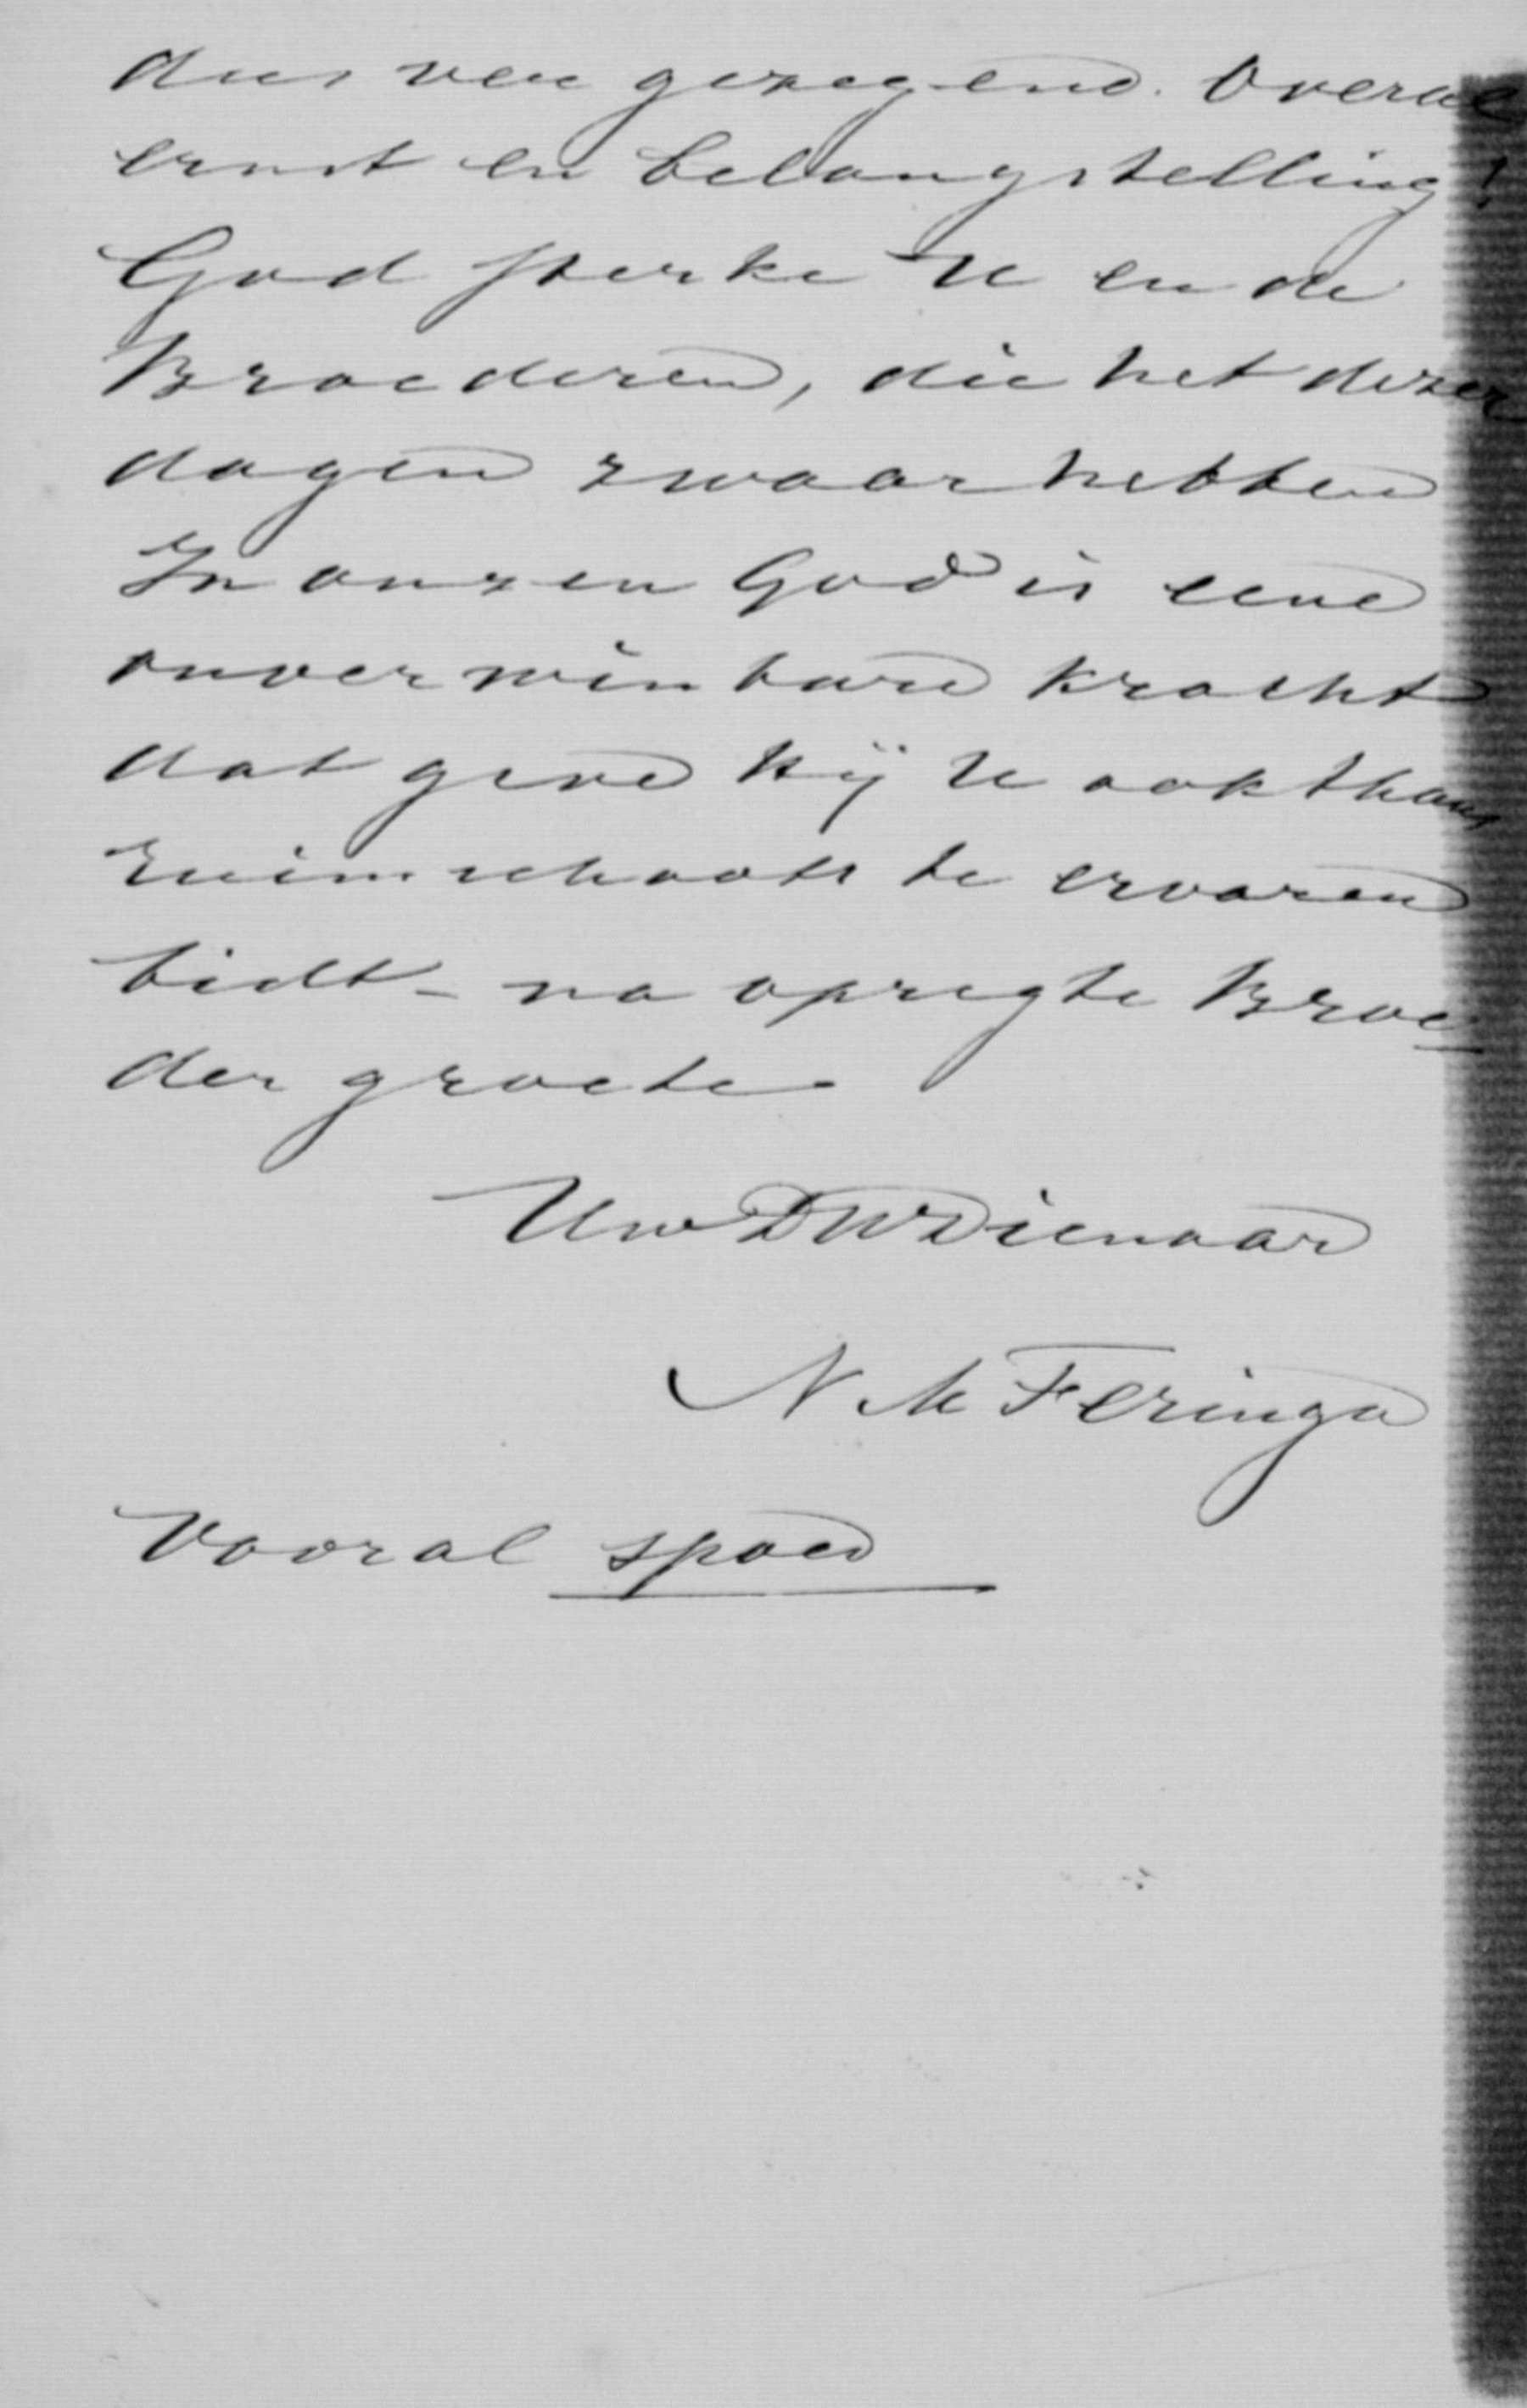 dus veu gezegend. Overal
ernst en belangstelling!
God sterke U en de
Broederen, die het dezer
dagen zwaar hebben
In onzen God is eene
onverwinbare kracht
dat geve Hij U ook thans
ruimschoots te ervaren
bidt - na opregte Broe
der groete
Uw DWDienaar
N M Feringa
Vooral spoed